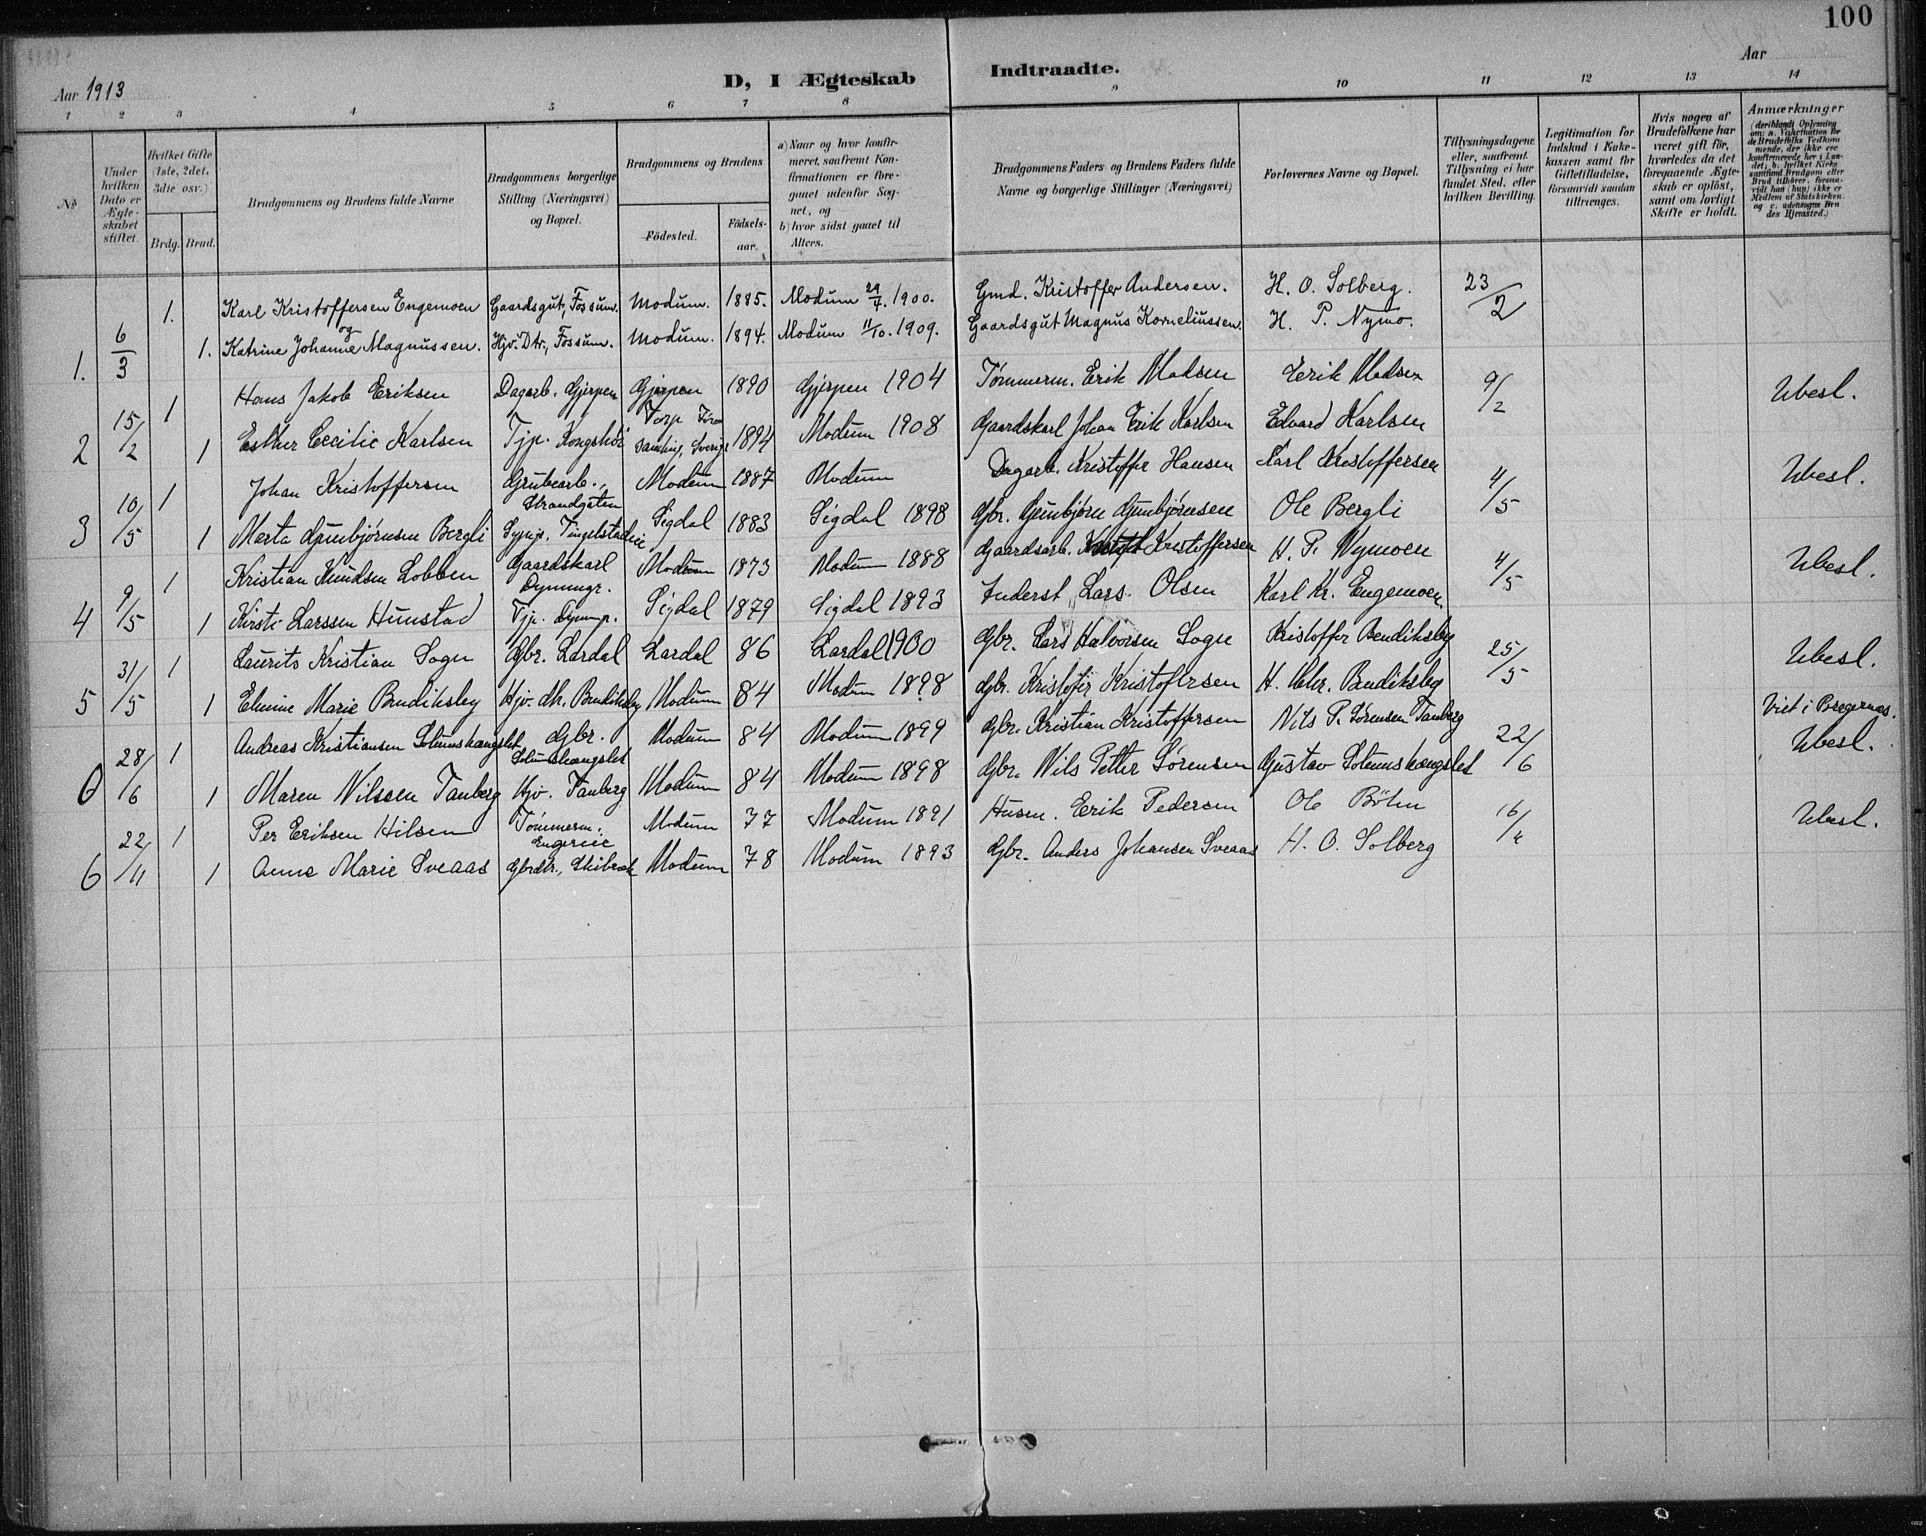 100
Aar 1913
D, I Ægteskab Indtraadte.
Aar
1 2 3 4 5 6 7 8 9 10 11 12 13 14
No
Under hvilken Dato er Ægteskabet stiftet.
Hvilket Gifte (1ste, 2det, 3die osv.)
Brdg. Brud.
Brudgommens og Brudens fulde Navne
Brudgommens borgerlige Stilling (Næringsvei) og Bopæl.
Brudgommens og Brudens
Födested.
Födselsaar.
a) Naar og hvor konfirmeret, saafremt Konfirmationen er foregaaet udenfor Sognet, og
b) hvor sidst gaaet til Alters.
Brudgommens Faders og Brudens Faders fulde Navne og borgerlige Stillinger (Næringsvei)
Forlovernes Navne og Bopæl.
Tillysningsdagene eller, saafremt Tillysning ei har fundet Sted, efter hvilken Bevilling.
Legitimation for Indskud i Kukekassen samt for Giftetilladelse, forsaavidt saadan tiltrænges.
Hvis nogen af Brudefolkene har været gift för, hvorledes da det foregaaende Ægteskab er oplöst, samt om lovligt Skifte er holdt.
Anmærkninger
1. 6/3 1. Karl Kristoffersen Engemoen Gaardsgut, Fossum. Modum. 1885. Modum 29/4. 1900. Gmd. Kristoffer Andersen. H. O. Solberg. 23/2
og
1. Katrine Johanne Magnussen. Hjv. Dtr., Fossum. Modum. 1894. Modum 11/10. 1909. Gaardsgut Magnus Korneliussen. H. P. Nymo.
2 15/2 1 Hans Jakob Eriksen Dagarb. Gjerpen Gjerpen 1890 Gjerpen 1904 Tømmerm. Erik Madsen Erik Madsen 9/2 Ubesl.
1 Esther Cecilie Karlsen Tjp. Sverige 1894 Modum 1908 Gaardskarl Johan Erik Karlsen Edvard Karlsen
3 10/5 1 Johan Kristoffersen Grubearb., Strandgaten Modum 1887 Modum Dagarb. Kristoffer Hansen Karl Kristoffersen 4/5 Ubesl.
1 Marta Gunbjørnsen Bergli Syerp. Tingelstadeie Sigdal 1883 Sigdal 1898 Gbr. Gunbjørn Gunbjørnsen Ole Bergli
4 9/5 1 Kristian Knudsen Lobben Gaardskarl Modum 1873 Modum 1888 Gaardsarb. Kristoffersen H. P. Nymoen 4/5 Ubesl.
1 Kirsti Larssen Hunstad Tjp. Sigdal 1879 Sigdal 1893 Inderst Lars Olsen Karl Kr. Engemoen
5 31/5 1 Laurits Kristian Sogn Gbr. Lardal Lardal 86 Lardal 1900 Gbr. Lars Halvorsen Sogn Kristoffer Bendiksby 25/5 Ubesl.
1 Elmine Marie Bendiksby Hjv. dtr. Bendiksby Modum 84 Modum 1898 Gbr. Kristofer Kristofersen H. Chr. Bendiksby
Viet i Bragernes.
0 28/6 1 Andreas Kristiansen Solumshængslet Gbr. Solumshængslet Modum 84 Modum 1899 Gbr. Kristian Kristoffersen Nils P. Sørensen Tanberg 22/6 Ubesl.
1 Maren Nilssen Tanberg Hjv. Tanberg Modum 84 Modum 1898 Gbr. Nils Petter Sørensen Gustav Solumshængslet
6 22/11 1 Per Eriksen Hilsen Tömmerm. Engereie Modum 77 Modum 1891 Husm. Erik Pedersen Ole Böhn 16/4 Ubesl.
1 Anne Marie Sveaas Gbrdtr., Modum 78 Modum 1893 Gbr. Anders Johansen Sveaas H. O. Solberg